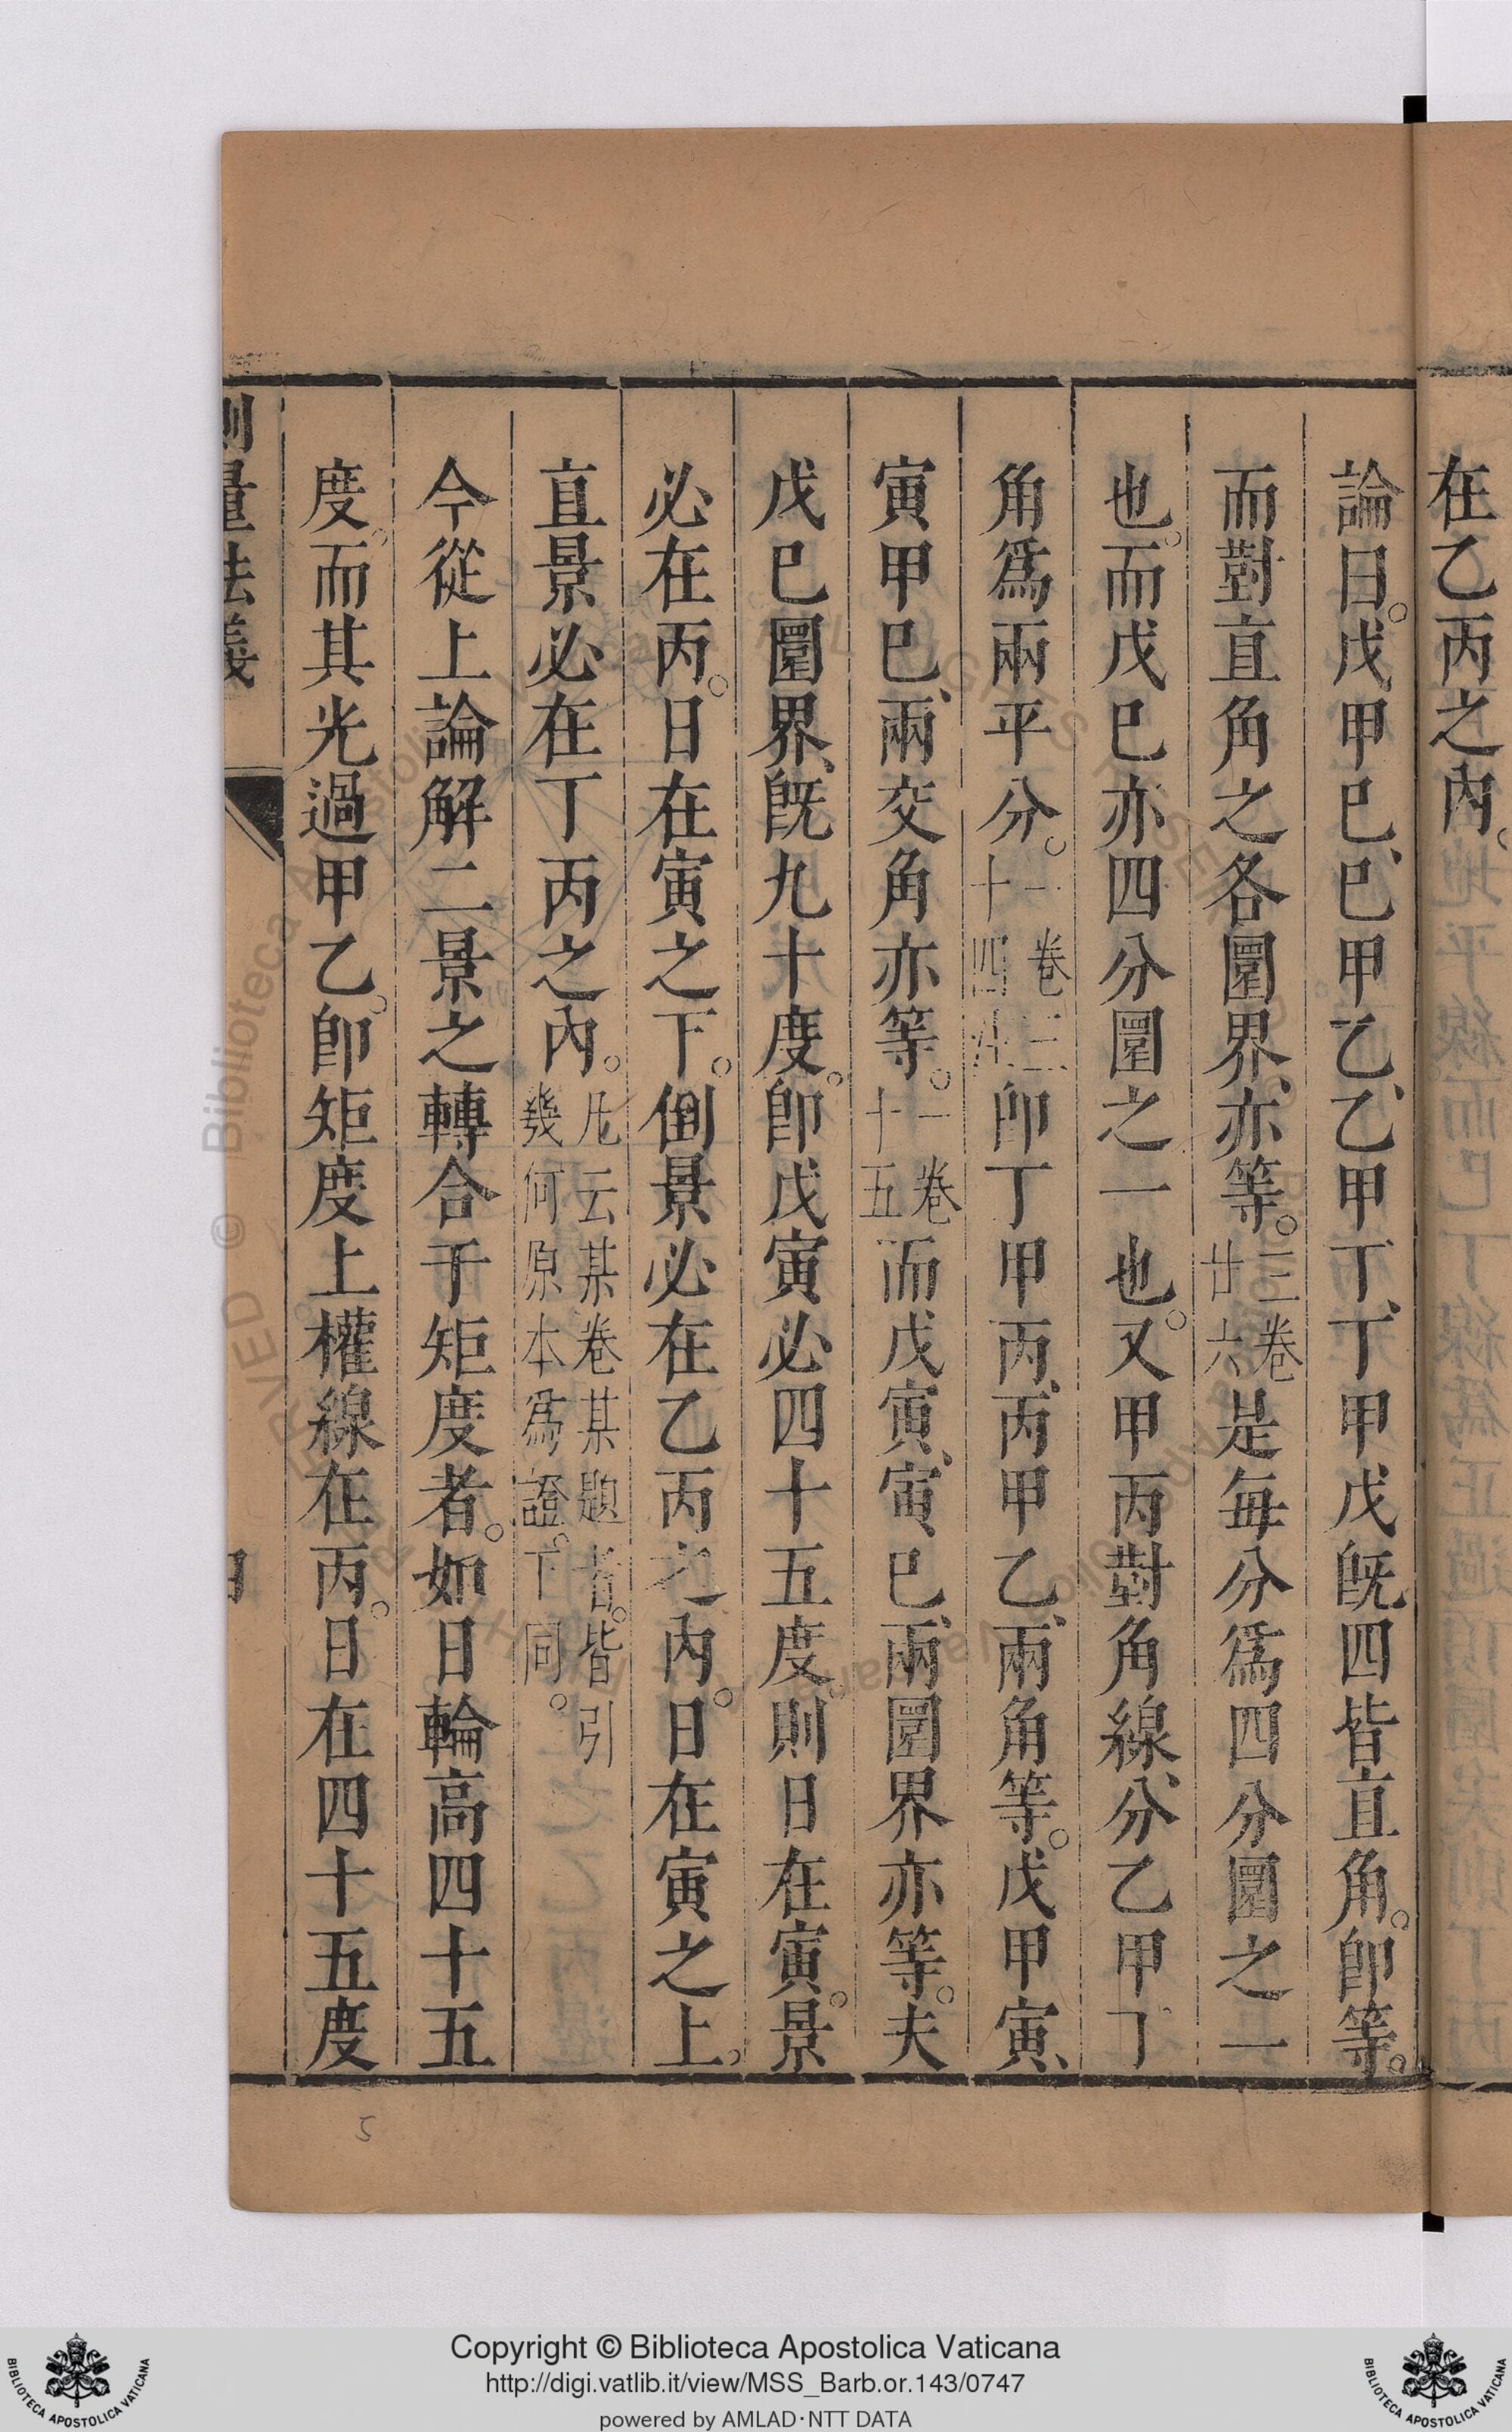 在乙丙之內。
論曰。戊甲巳、巳甲乙、乙甲丁、丁甲戊旣四皆直角。卽等。
而對直角之各圜界、亦等。三卷廿六是每分爲四分圜之一
也。而戊巳亦四分圜之一也。又甲丙對角線、分乙甲丁
角爲兩平分。一卷十四卽丁甲丙、丙甲乙、兩角等。戊甲寅、
寅甲巳、兩交角亦等。一卷十五而戊寅、寅巳、兩圜界亦等。夫
戊巳圜界、旣九十度。卽戊寅必四十五度則日在寅。景
必在丙。日在寅之下。倒景必在乙丙之內。日在寅之上。
直景必在丁丙之內。凡云某卷某題者。皆引幾何原本爲證。下同。
今從上論解二景之轉合于矩度者。如日輪高四十五
度。而其光過甲乙。卽矩度上權線在丙。日在四十五度
測量法義
5
BIBLIOTECA APOSTOLICA VATICANA
Copyright © Biblioteca Apostolica Vaticana
http://digi.vatlib.it/view/MSS_Barb.or.143/0747
powered by AMLAD·NTT DATA
BIBLIOTECA APOSTOLICA VATICANA